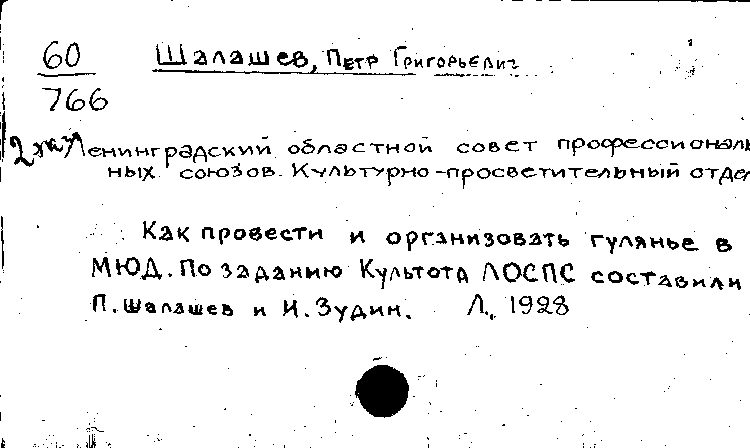 60 Шалашев, Петр Григорьевич
766
2 экз Ленинградский областной совет профессиональ
ных союзов. Культурно-просветительный отдел
Как провести и организовать гулянье в
МЮД. По заданию Культота ЛОСПС составили
П. Шалашев и И. Зудин. Л., 1928